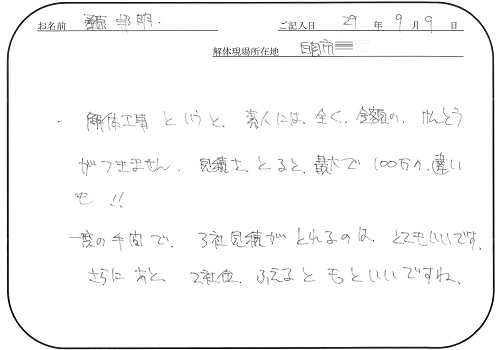 お名前 ご記入日 29 年 9 月 9 日
解体現場所在地
・ 解体工事というと、素人には、全く、金額の、けんとう
がつきません、見積を、とると、最大で100万の、違い
も!!
一度の手間で、3社見積がとれるのは、とてもいいです。
さらにあと、2社位、ふえるともといいですね、